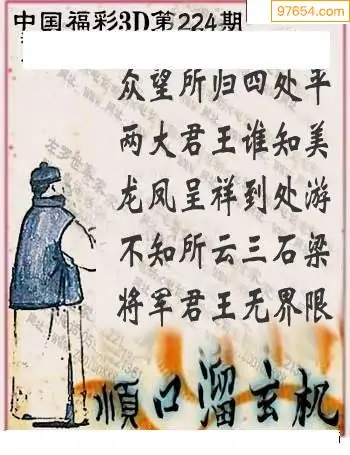 中国福彩3D第224期
97654.com
众望所归四处平
两大君王谁知美
龙凤呈祥到处游
不知所云三石梁
将军君王无界限
順口溜玄机